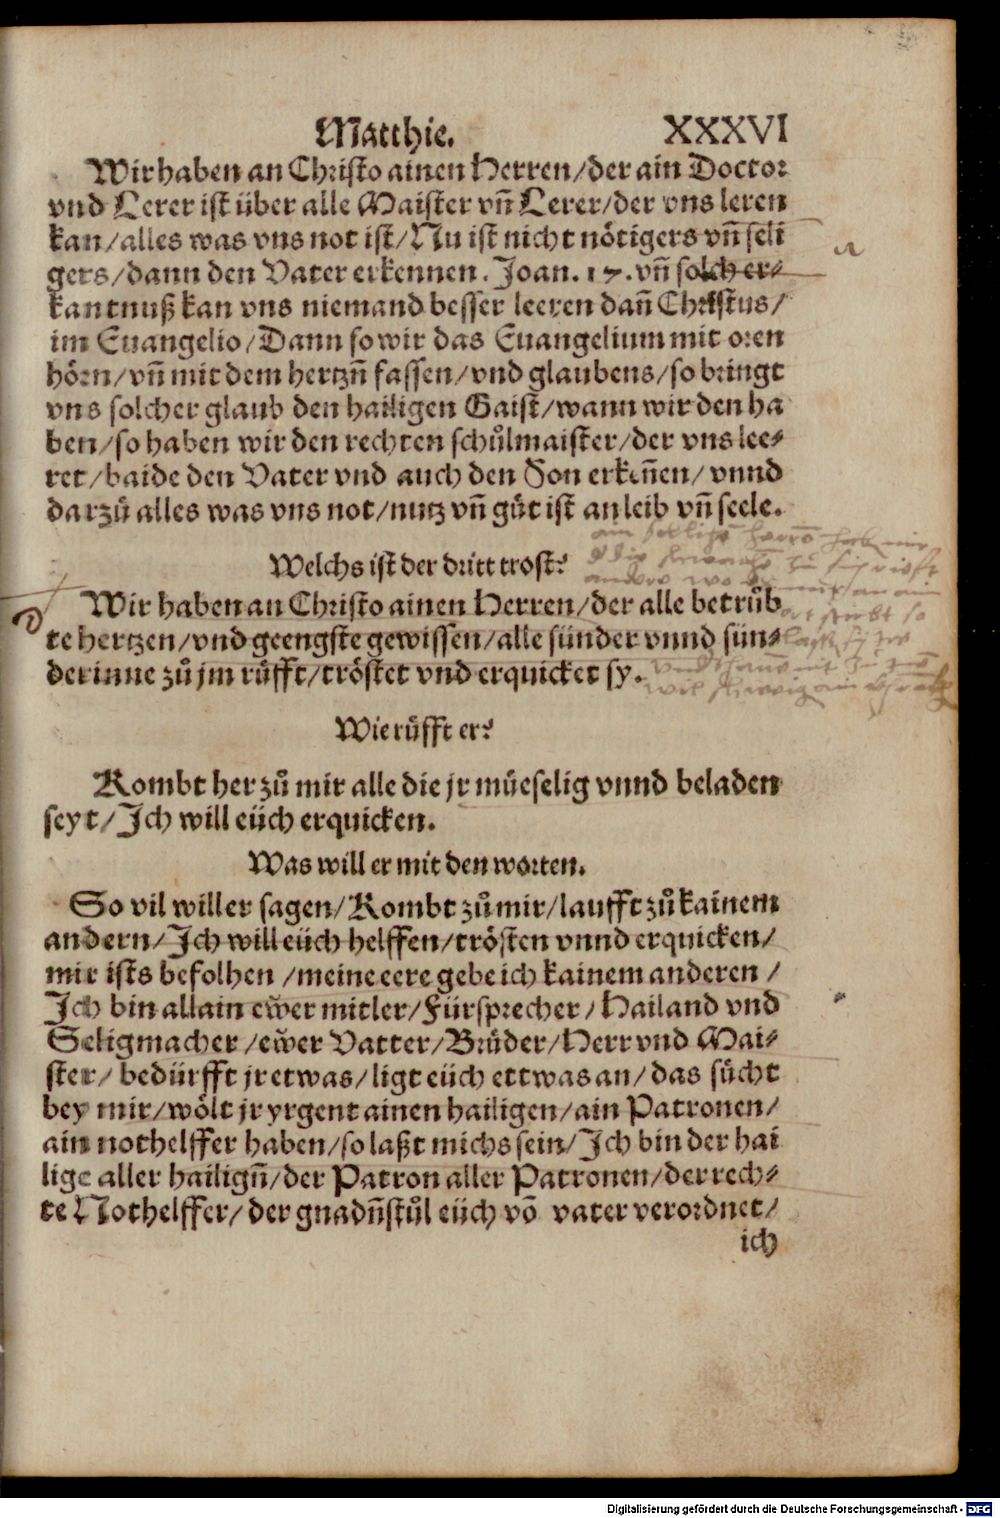 Matthie. XXXVI
Wir haben an Christo ainen Herren/der ain Doctor
vnd Lerer ist über alle Maister vñ Lerer/der vns leren
kan/alles was vns not ist/Nu ist nicht nötigers vñ seli
gers/dann den Vater erkennen. Joan. 17. vñ solch er⸗
kantnuß kan vns niemand besser leeren dañ Christus/
im Euangelio/Dann so wir das Euangelium mit oren
hörn/vñ mit dem hertzñ fassen/vnd glaubens/so bringt
vns solcher glaub den hailigen Gaist/wann wir den ha
ben/so haben wir den rechten schůlmaister/der vns lee⸗
ret/baide den Vater vnd auch den Son erkeñen/vnnd
darzů alles was vns not/nutz vñ gůt ist an leib vñ seele.
Welchs ist der dritt trost?
Wir haben an Christo ainen Herren/der alle betrůb
te hertzen/vnd geengste gewissen/alle sünder vnnd sün⸗
derinne zů jm růfft/tröstet vnd erquicket sy.
Wie růfft er?
Kombt her zů mir alle die jr müeselig vnnd beladen
seyt/Ich will eüch erquicken.
Was will er mit den worten.
So vil will er sagen/Kombt zů mir/laufft zů kainem
andern/Ich will eüch helffen/trösten vnnd erquicken/
mir ists befolhen/meine eere gebe ich kainem anderen/
Ich bin allain ewer mitler/Fürsprecher/Hailand vnd
Seligmacher/ewer Vatter/Brůder/Herr vnd Mai⸗
ster/bedürfft jr etwas/ligt eüch ettwas an/das sůcht
bey mir/wölt jr yrgent ainen hailigen/ain Patronen/
ain nothelffer haben/so laßt michs sein/Ich bin der hai
lige aller hailigñ/der Patron aller Patronen/der rech⸗
te Nothelffer/der gnadñstůl eüch võ vater verordnet/
ich
Digitalisierung gefördert durch die Deutsche Forschungsgemeinschaft - DFG